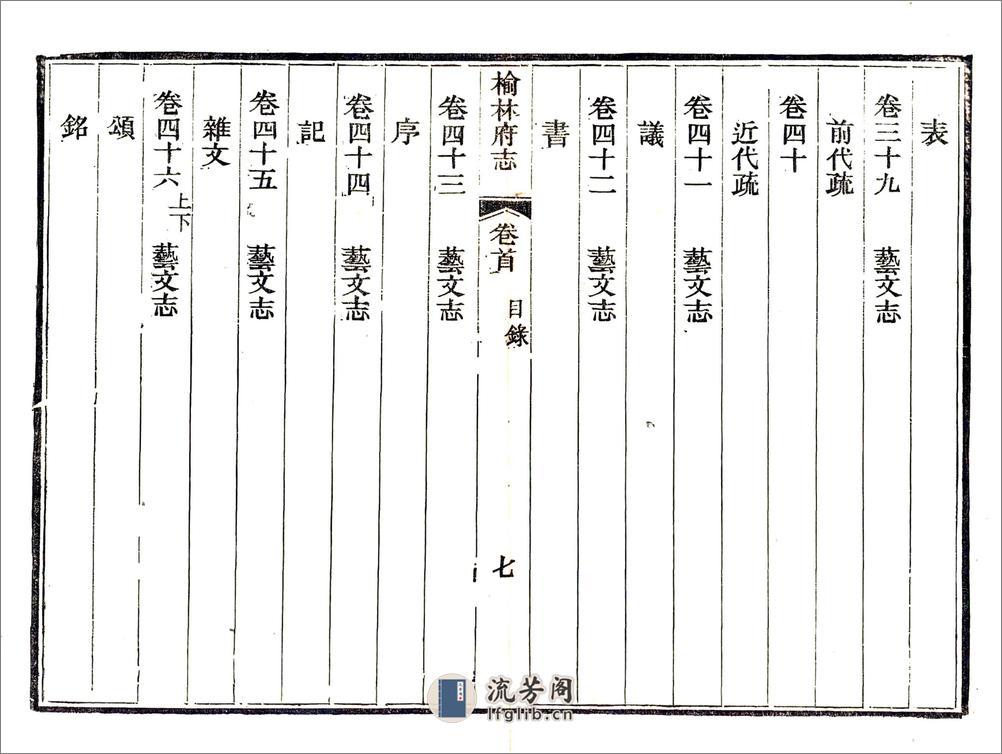 表
卷三十九 藝文志
前代疏
卷四十
近代疏
卷四十一 藝文志
議
卷四十二 藝文志
書
榆林府志 卷首 目錄 七
卷四十三 藝文志
序
卷四十四 藝文志
記
卷四十五 藝文志
雜文
卷四十六上下 藝文志
頌
銘
流芳阁
lfglib.cn